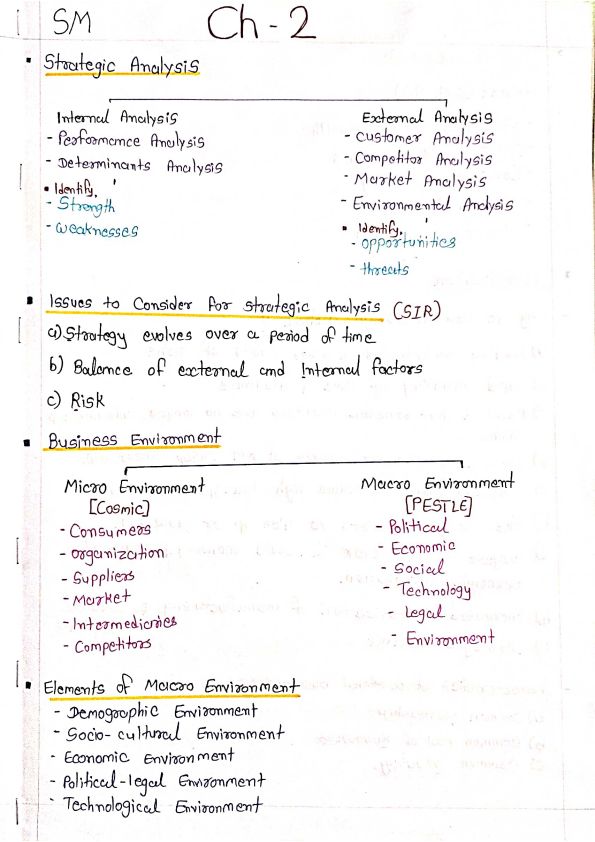 SM Ch - 2
Strategic Analysis
Internal Analysis
- Performance Analysis
- Determinants Analysis
• Identify,
- Strength
- Weaknesses
External Analysis
- Customer Analysis
- Competitor Analysis
- Market Analysis
- Environmental Analysis
• Identify,
- opportunities
- threats
Issues to Consider for Strategic Analysis (SIR)
a) Strategy evolves over a period of time
b) Balance of external and Internal factors
c) Risk
Business Environment
Micro Environment
[Cosmic]
- Consumers
- organization
- Suppliers
- Market
- Intermediaries
- Competitors
Macro Environment
[PESTLE]
- Political
- Economic
- Social
- Technology
- Legal
- Environment
Elements of Macro Environment
- Demographic Environment
- Socio-cultural Environment
- Economic Environment
- Political-legal Environment
- Technological Environment